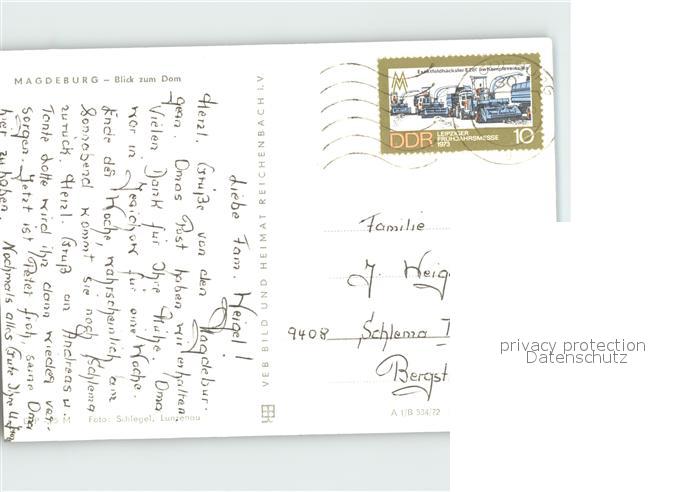 MAGDEBURG – Blick zum Dom
Liebe Fam. Weigel!
Herzl. Grüße von den Magdebur-
gern. Omas Post haben wir erhalten
Vielen Dank für Ihre Mühe. Oma
war in Jerichow für eine Woche.
Ende der Woche, wahrscheinlich am
Sonnabend kommt sie nach Schlema
zurück. Herzl. Gruß an Andreas u.
Tante Lotte wird ihn dann wieder ver-
sorgen. Jetzt ist Peter froh, seine Oma
hier zu haben. Nochmals alles Gute Ihre
Foto: Schlegel, Lunzenau
VEB BILD UND HEIMAT REICHENBACH I.V.
DDR
LEIPZIGER
FRÜHJAHRSMESSE
1973
10
Familie
J. Weig
9408 Schlema
Bergst
A 1/B 334/72
privacy protection
Datenschutz